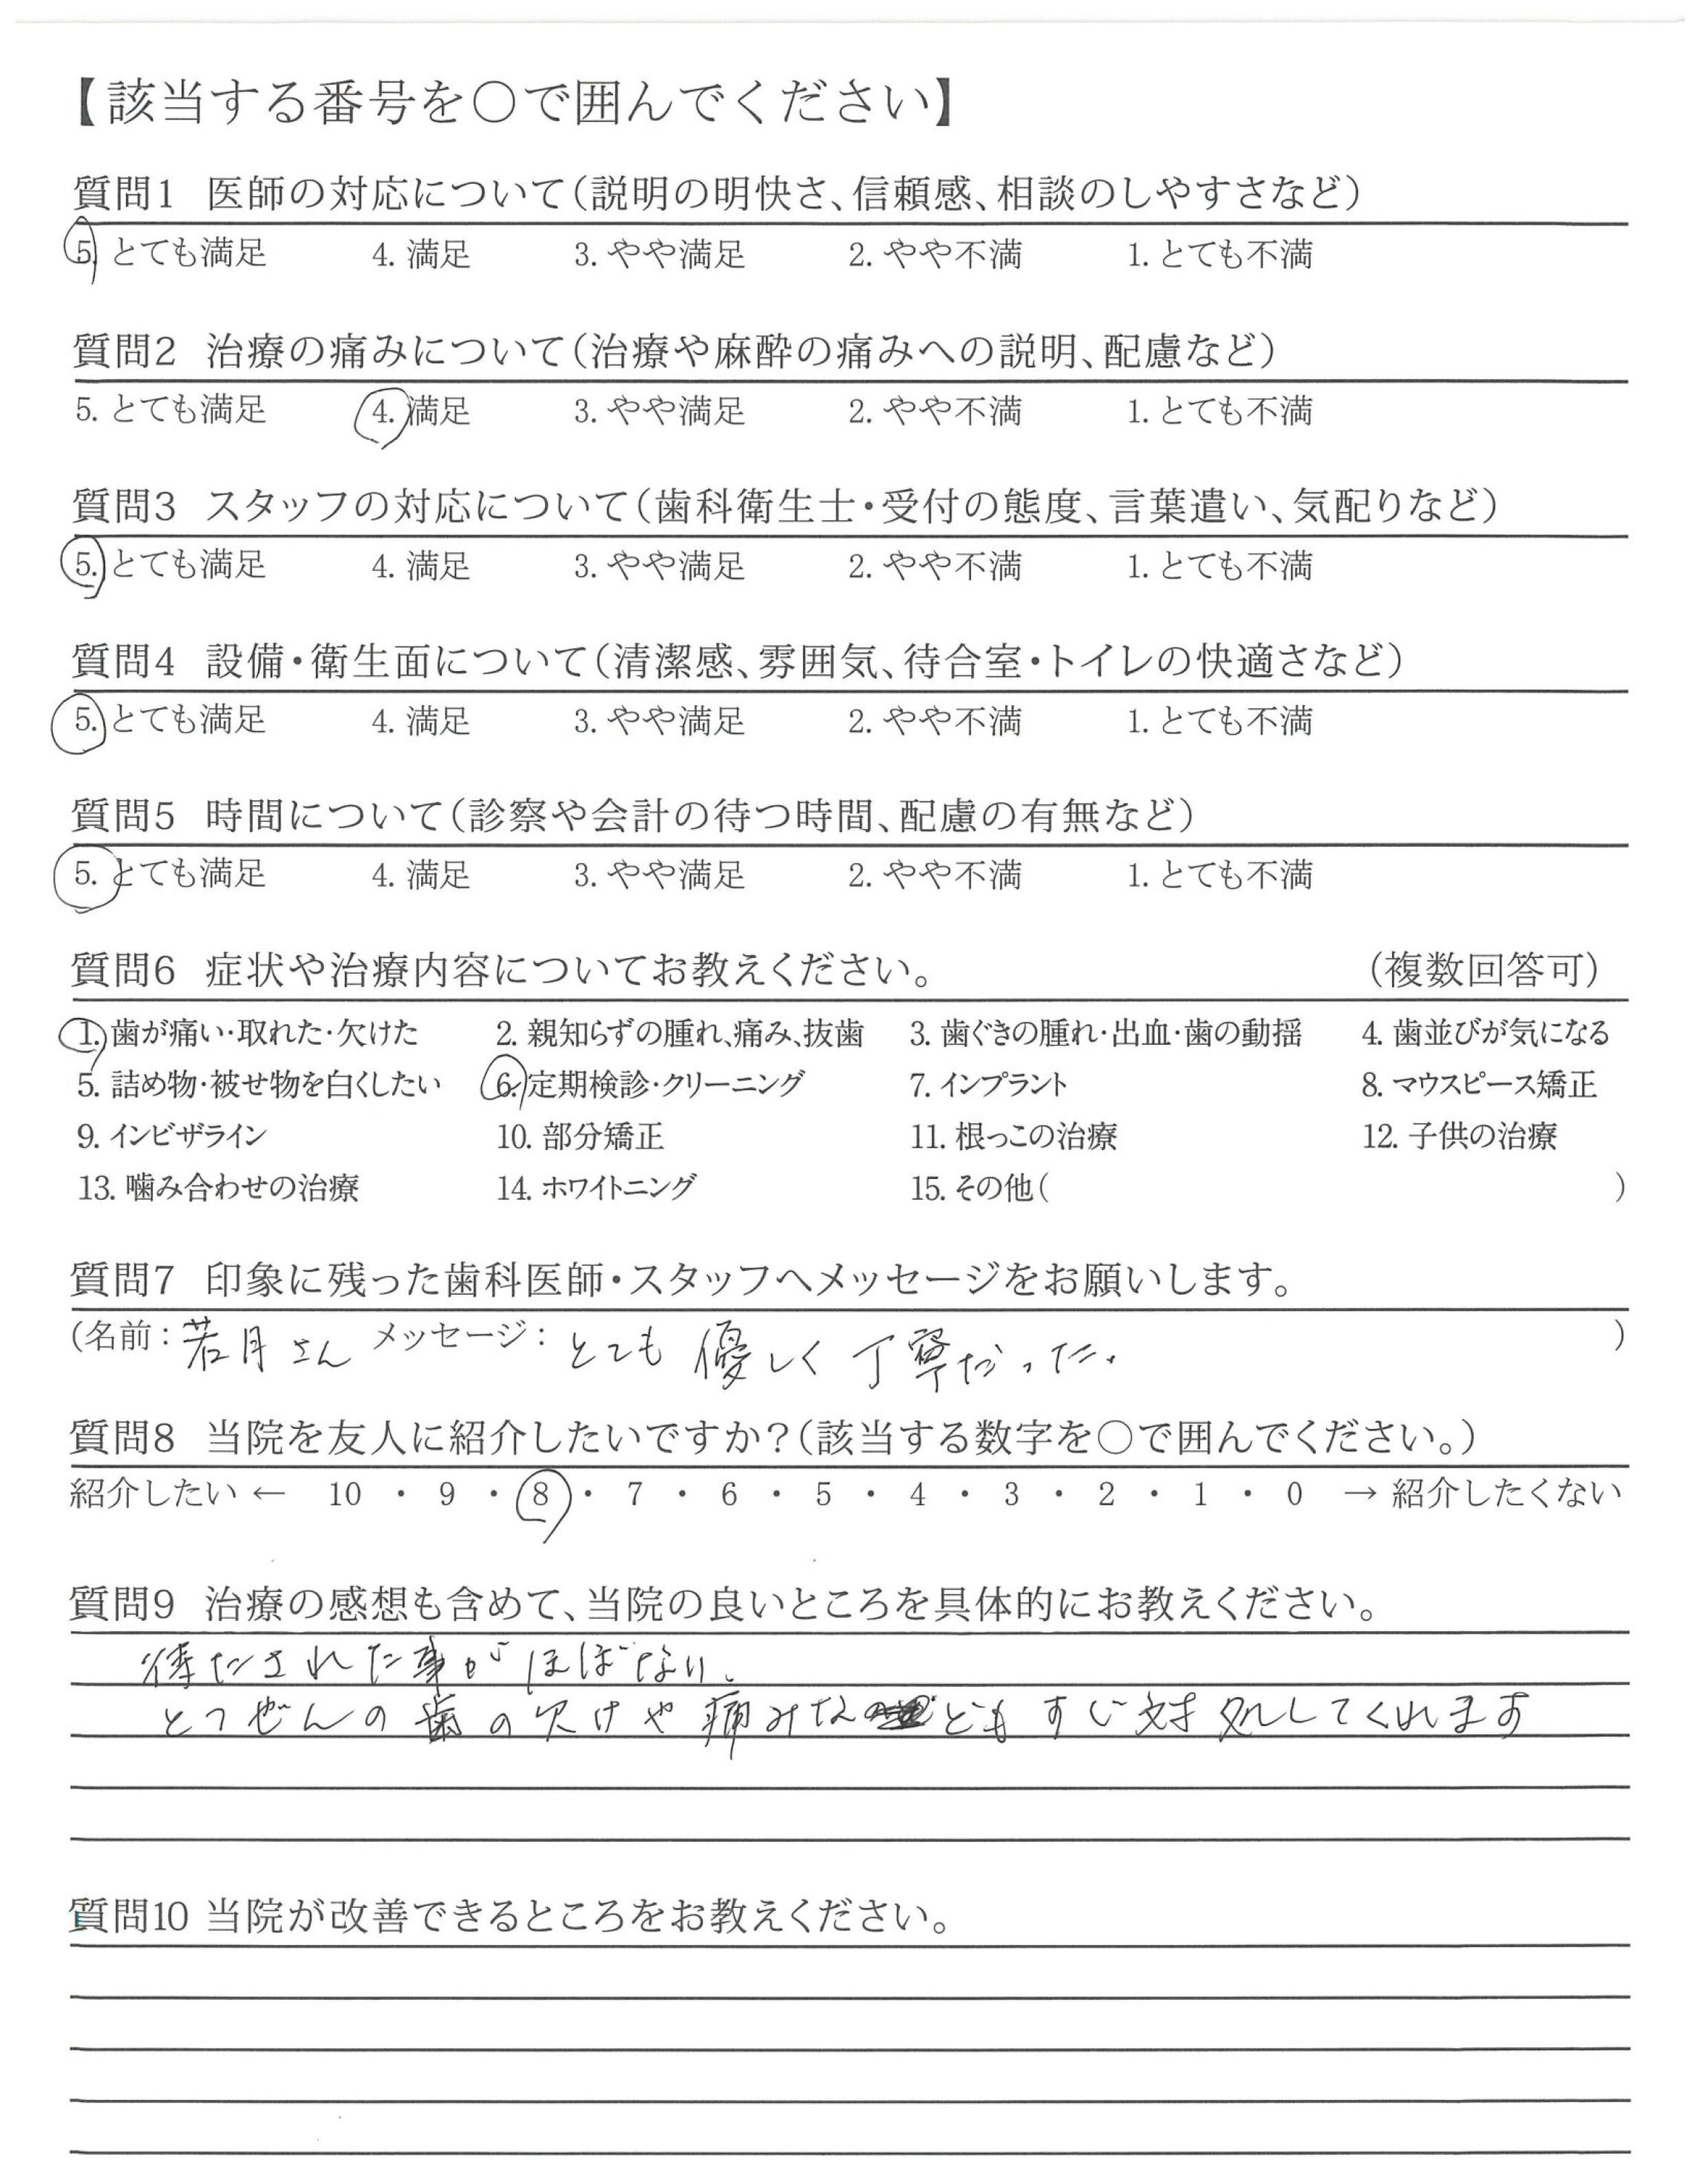 【該当する番号を〇で囲んでください】
質問1 医師の対応について(説明の明快さ、信頼感、相談のしやすさなど)
5. とても満足 4. 満足 3. やや満足 2. やや不満 1. とても不満
質問2 治療の痛みについて(治療や麻酔の痛みへの説明、配慮など)
5. とても満足 4. 満足 3. やや満足 2. やや不満 1. とても不満
質問3 スタッフの対応について(歯科衛生士・受付の態度、言葉遣い、気配りなど)
5. とても満足 4. 満足 3. やや満足 2. やや不満 1. とても不満
質問4 設備・衛生面について(清潔感、雰囲気、待合室・トイレの快適さなど)
5. とても満足 4. 満足 3. やや満足 2. やや不満 1. とても不満
質問5 時間について(診察や会計の待つ時間、配慮の有無など)
5. とても満足 4. 満足 3. やや満足 2. やや不満 1. とても不満
質問6 症状や治療内容についてお教えください。 (複数回答可)
1. 歯が痛い・取れた・欠けた 2. 親知らずの腫れ、痛み、抜歯 3. 歯ぐきの腫れ・出血・歯の動揺 4. 歯並びが気になる
5. 詰め物・被せ物を白くしたい 6. 定期検診・クリーニング 7. インプラント 8. マウスピース矯正
9. インビザライン 10. 部分矯正 11. 根っこの治療 12. 子供の治療
13. 噛み合わせの治療 14. ホワイトニング 15. その他( )
質問7 印象に残った歯科医師・スタッフへメッセージをお願いします。
(名前: 若月さん メッセージ: とても優しく丁寧だった。 )
質問8 当院を友人に紹介したいですか?(該当する数字を〇で囲んでください。)
紹介したい ← 10 ・ 9 ・ 8 ・ 7 ・ 6 ・ 5 ・ 4 ・ 3 ・ 2 ・ 1 ・ 0 → 紹介したくない
質問9 治療の感想も含めて、当院の良いところを具体的にお教えください。
待たされた事がほぼない。
とつぜんの歯の欠けや痛みなども すぐ対処してくれます
質問10 当院が改善できるところをお教えください。